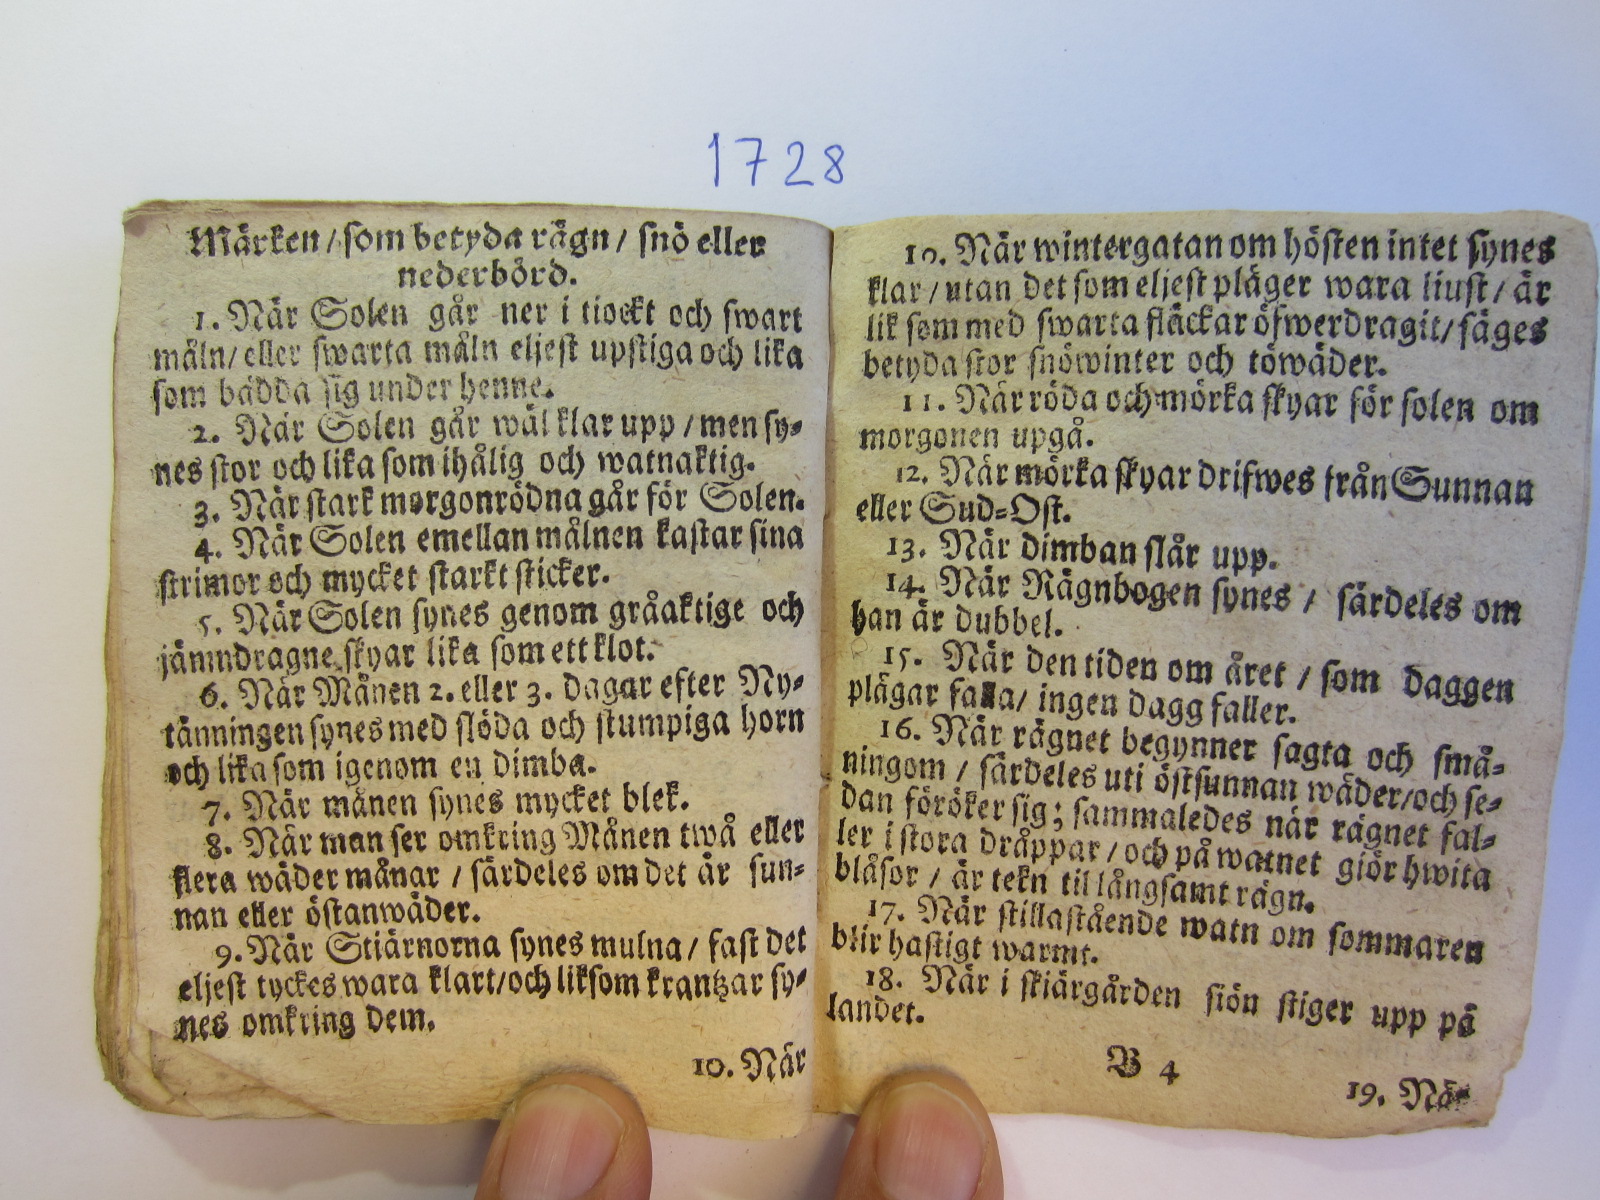 1728
Märken / som betyda rägn / snö eller
nederbörd.
1. När Solen går ner i tiockt och swart
måln / eller swarta måln eljest upstiga och lika
som bädda sig under henne.
2. När Solen går wäl klar upp / men sy-
nes stor och lika som ihålig och watnaktig.
3. När stark morgonrödna går för Solen.
4. När Solen emellan målnen kastar sina
strimor och mycket starkt sticker.
5. När Solen synes genom gråaktige och
jämndragne skyar lika som ett klot.
6. När Månen 2. eller 3. dagar efter Ny-
tänningen synes med slöda och stumpiga horn
och lika som igenom en dimba.
7. När månen synes mycket blek.
8. När man ser omkring Månen twå eller
flera wäder månar / särdeles om det är sun-
nan eller östanwäder.
9. När Stiärnorna synes mulna / fast det
eljest tyckes wara klart / och liksom krantzar sy-
nes omkring dem.
10. När
10. När wintergatan om hösten intet synes
klar / utan det som eljest pläger wara liust / är
lik som med swarta fläckar öfwerdragit / säges
betyda stor snöwinter och töwäder.
11. När röda och mörka skyar för solen om
morgonen upgå.
12. När mörka skyar drifwes från Sunnan
eller Sud-Ost.
13. När dimban slår upp.
14. När Rägnbogen synes / särdeles om
han är dubbel.
15. När den tiden om året / som daggen
plägar falla / ingen dagg faller.
16. När rägnet begynner sagta och små-
ningom / särdeles uti östsunnan wäder / och se-
dan föröker sig ; sammaledes när rägnet fal-
ler i stora dråppar / och på watnet giör hwita
blåsor / är tekn til långsamt rägn.
17. När stillastående watn om sommaren
blir hastigt warmt.
18. När i skiärgården siön stiger upp på
landet.
B 4
19. När